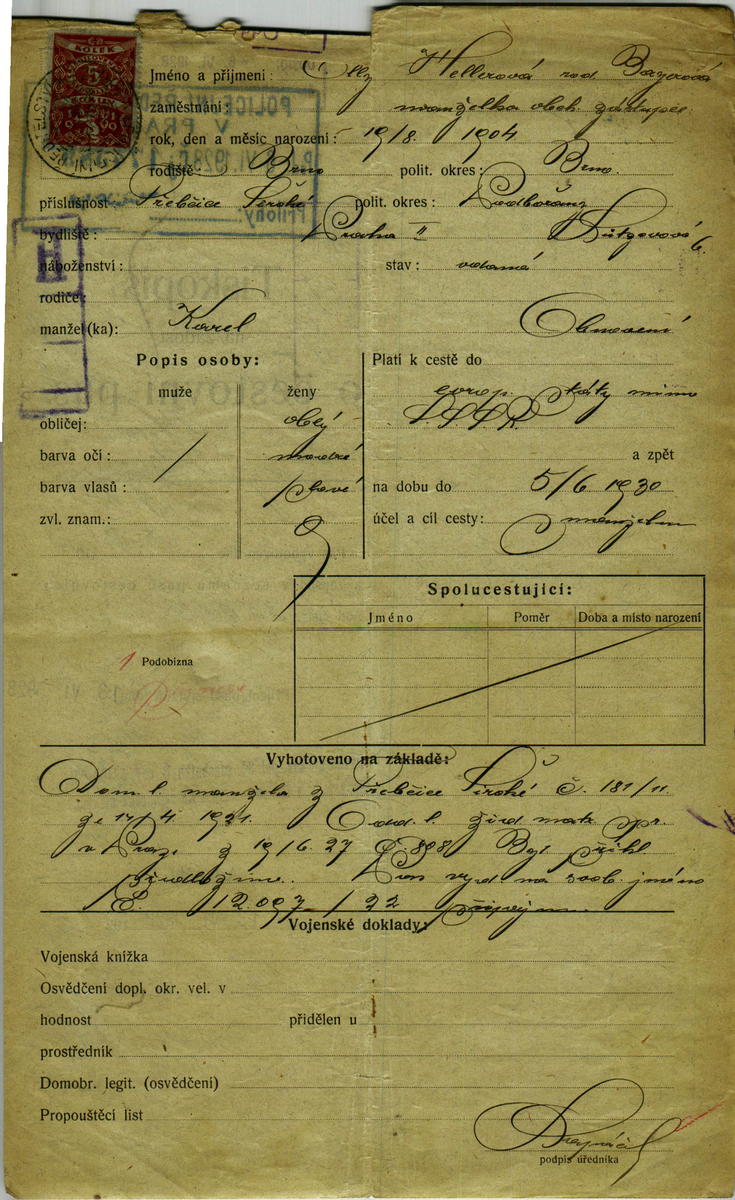 KOLEK
5
Jméno a příjmení: Elly Hellerová roz. Bayerová
zaměstnání: manželka obch. zástupce
rok, den a měsíc narození: 19/8. 1904
POLICEJNÍ ŘED
V PRA
VI. 1929
Přílohy:
rodiště: Brno polit. okres: Brno.
příslušnost: Široké polit. okres: Podbořany
bydliště: Praha II 6.
H
náboženství: stav: vdaná
rodiče:
manžel(ka): Karel Obnovení
Popis osoby: Platí k cestě do
muže ženy evrop. státy mimo
obličej: oblý SSSR
barva očí: modré a zpět
barva vlasů: plavé na dobu do 5/6 1930
zvl. znam.: účel a cíl cesty: s manželem
Spolucestující:
Jméno Poměr Doba a místo narození
1 Podobizna
Vyhotoveno na základě:
Dom. l. manžela z Široké č. 181/11
ze 17/4. 1921. Odd. l. žid. mat.
v Praze z 19/6. 27 č. 898 přihl.
na svob. jméno
č. 12.097/22
Vojenské doklady:
Vojenská knížka
Osvědčení dopl. okr. vel. v
hodnost přidělen u
prostředník
Domobr. legit. (osvědčení)
Propouštěcí list
podpis úředníka